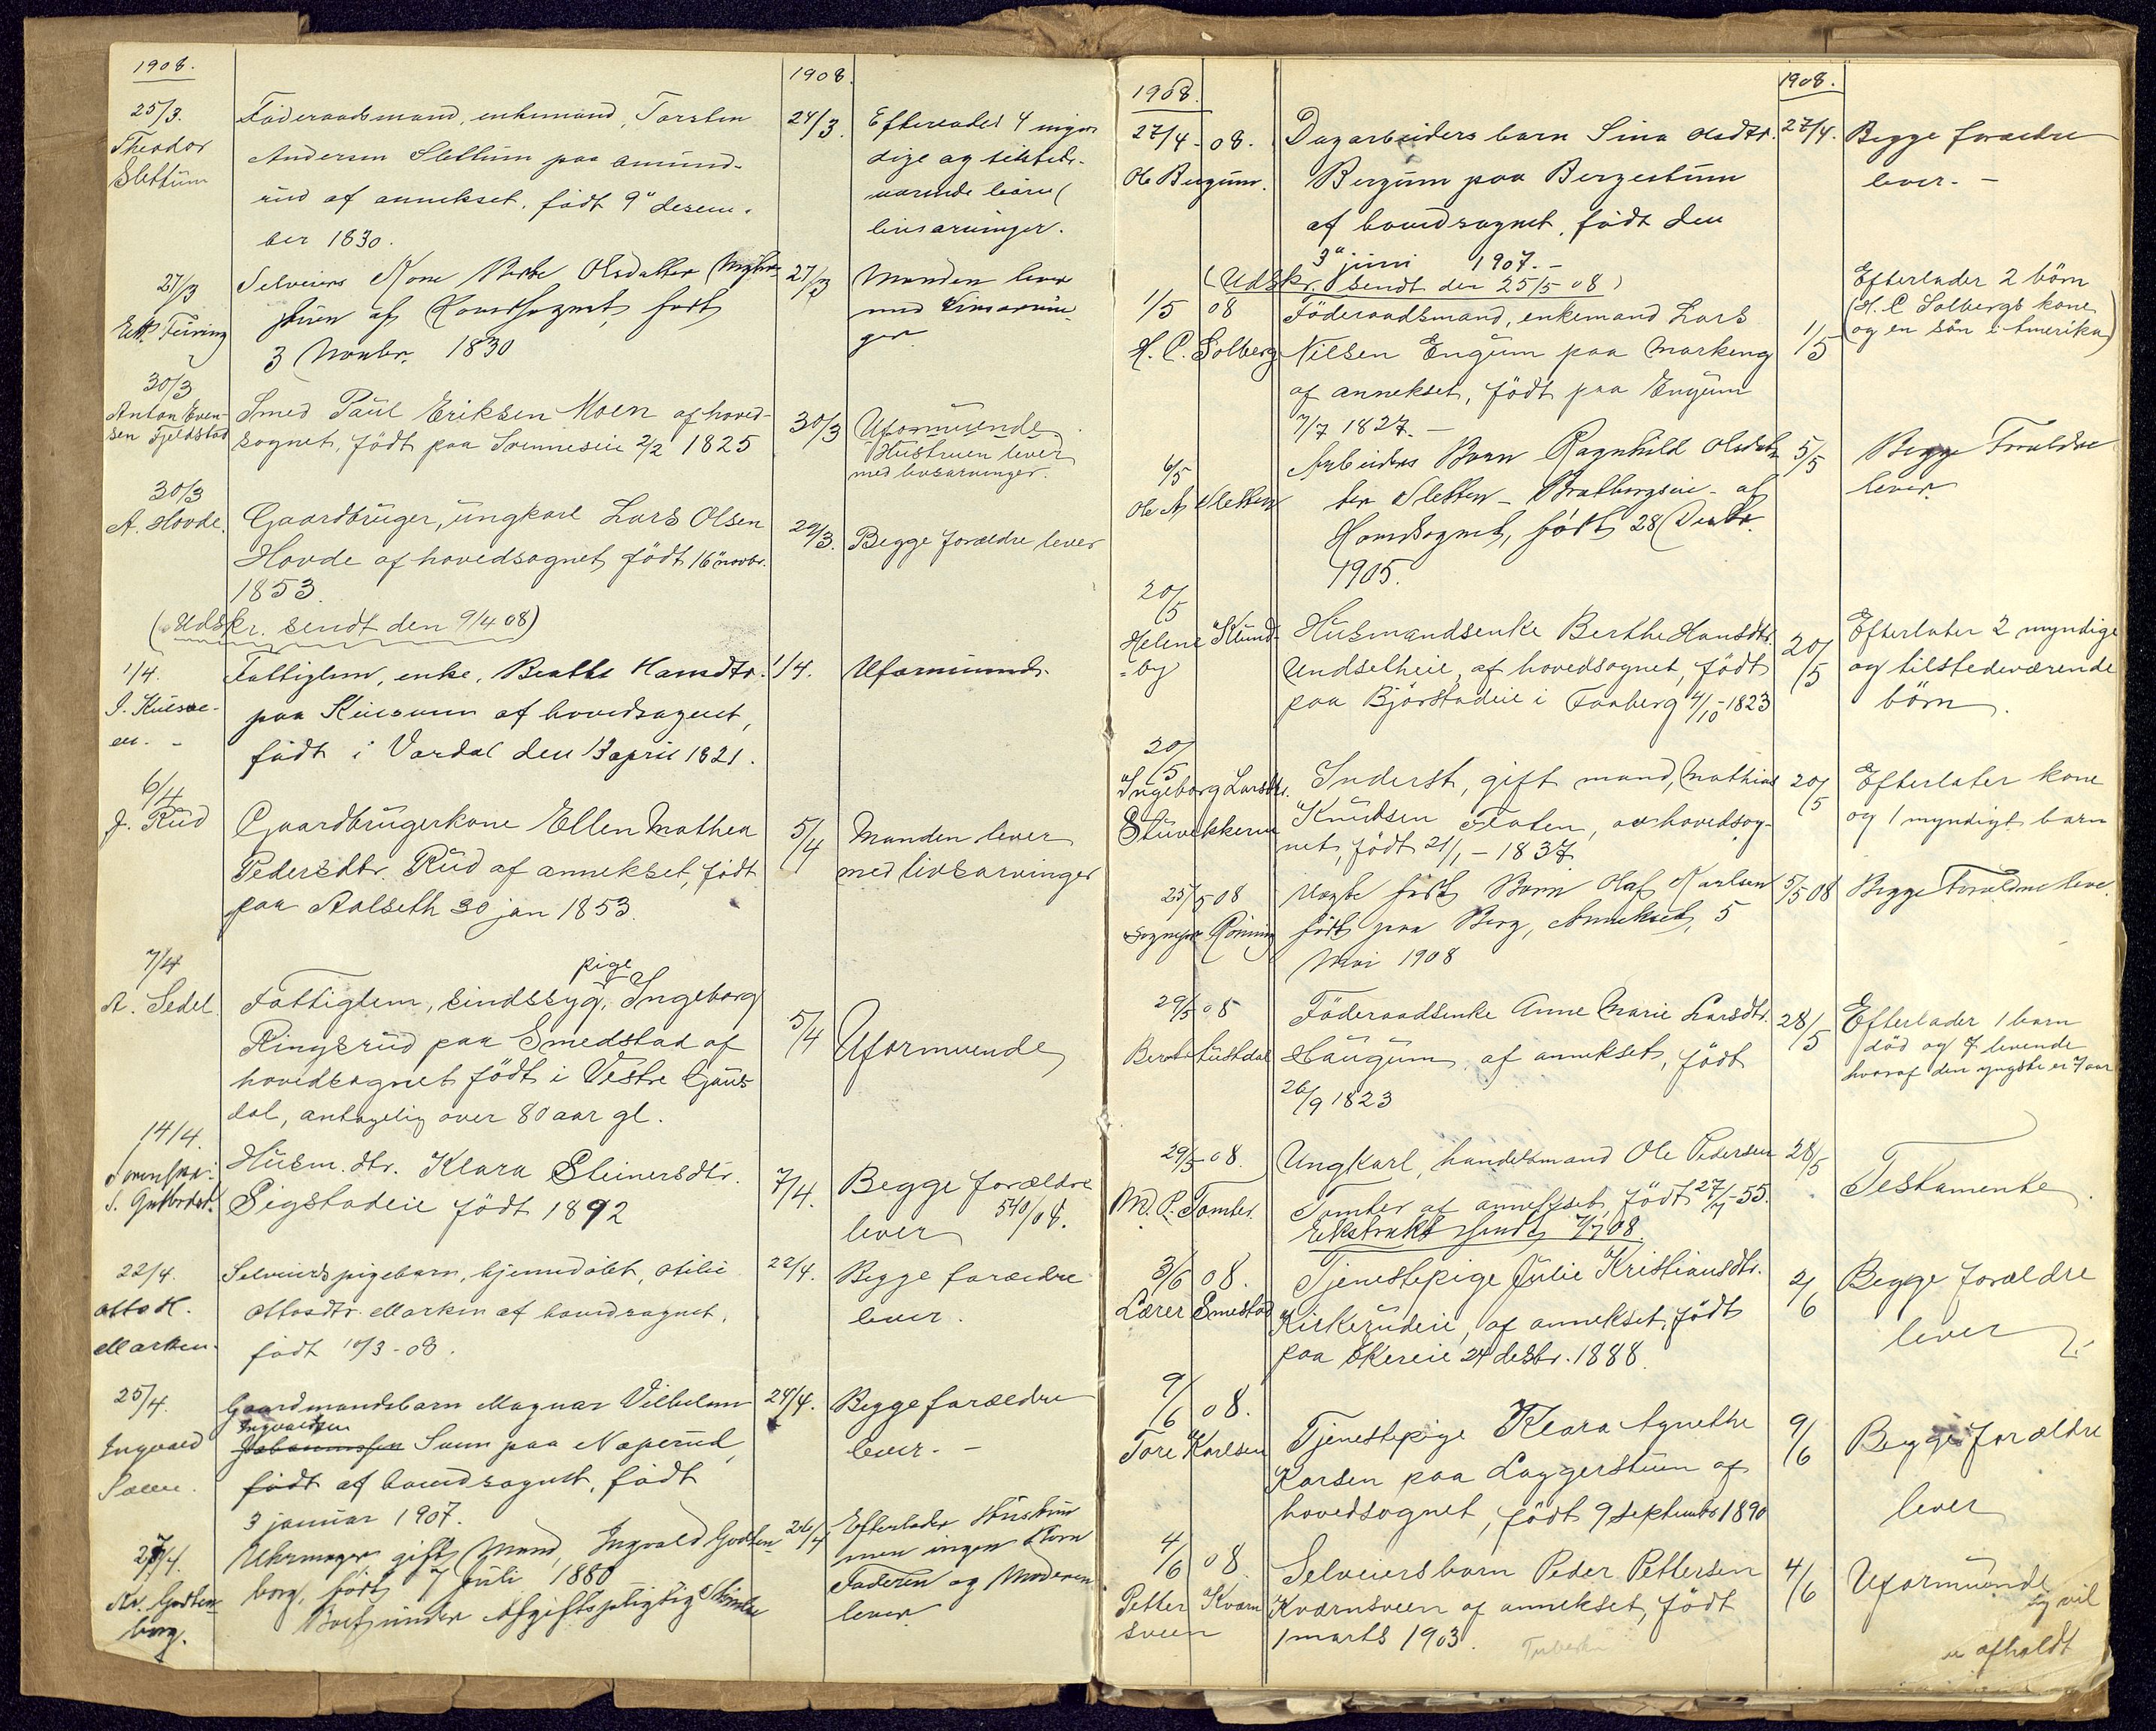 1908.
1908.
25/3.
Theodor
Slettum
Föderaadsmand, enkemand, Torsten
Andersen Slettum paa Amund-
rud af annekset, født 9" desem-
ber 1830.
24/3.
Efterlader 4 myn-
dige og tilstede-
værende börn (
livsarvinger.
27/3
Selveiers Kone Olsdatter
af Hovedsognet, født
3 Novbr. 1830
27/3
Manden lever
med Livsarvin-
ger
30/3
Anton Even-
sen Fjeldstad
Smed Paul Eriksen Moen af hoved-
sognet, födt paa 2/2 1825
30/3
Uformuende
Hustruen lever
med livsarvinger.
30/3
A. Hovde.
Gaardbruger, ungkarl Lars Olsen
Hovde af hovedsognet født 16 novbr.
1853.
29/3.
Begge forældre lever
(Udskr. sendt den 9/4 08)
1/4.
Fattiglem, enke, Beathe Hansdtr.
paa af hovedsognet,
født i Vardal den 13 april 1821.
1/4.
Uformuende
6/4
J. Rud
Gaardbrugerkone Ellen Mathea
Pedersdtr. Rud af annekset, født
paa Aalseth 30 jan 1853.
5/4
Manden lever
med livsarvinger
7/4
A. Sedel
pige
Fattiglem, sindssyg, Ingeborg
Ringsrud paa Smedstad af
hovedsognet født i Vestre Gaus-
dal, antagelig over 80 aar gl.
5/4
Uformuende
14/4.
Husm. dtr. Klara Steinersdtr.
Sigstadeie født 1892
7/4.
Begge forældre
lever 540/08.
22/4.
Otto H.
Marken.
Selveierspigebarn, hjemmedøbt, Otilie
Ottosdtr. Marken af hovedsognet,
født 10/3-08.
22/4.
Begge forældre
lever.
25/4.
Ingvald
Gaardmandsbarn Magnar Vilhelm
Ingvaldsen
Johannessen Suun paa Naperud,
født af hovedsognet, født
3 januar 1907.
24/4.
Begge forældre
lever. -
27/4.
Kr. Godten-
borg.
Uhrmager, gift Mand, Ingvald Godten-
borg, født 7 Juli 1880
Boet under Afgiftspligtig
26/4
Efterlader Hustru
men ingen Börn
Faderen og Moderen
lever
1908.
1908.
27/4-08.
Ole Bergum.
Dagarbeiders barn Sina Olsdtr.
Bergum paa Bergestuen
af hovedsognet, født den
3" juni 1907.-
27/4.
Begge forældre
lever.-
(Udskr. sendt den 25/5 08)
1/5 08
H. C. Solberg
Föderaadsmand, enkemand Lars
Nilsen Engum paa Markeng
af annekset, født paa Engum
7/7 1827.-
1/5
Efterlader 2 börn
(H. C Solbergs kone
og en sön i Amerika)
6/5
Ole A Sletten
Arbeiders Barn Ragnhild Olsdat-
ter Sletten - Bratbergseie - af
Hovedsognet, født 28 Decbr.
1905.
5/5
Begge Forældre
lever
20/5
Helene Klund-
by
Husmandsenke Berthe Hansdtr.
Undsetheie, af hovedsognet, født
paa Björstadeie i Faaberg 4/10-1823
20/5
Efterlater 2 myndige
og tilstedeværende
börn.
20/5
Ingeborg Larsdtr.
Stuvekkeren
Inderst, gift mand, Mathias
Knudsen Floten, av hovedsog-
net, født 21/1-1837
20/5
Efterlater kone
og 1 myndigt barn
25/5 08
Sognepr Rönning
født Barn Olaf Karlsen
født paa Berg, Annekset, 5
Mai 1908
5/5 08
Begge Forældre leve.
29/5 08
Föderaadsenke Anne Marie Larsdtr.
Haugum, af annekset, født
26/9 1823
28/5
Efterlader 1 barn
död og 7 levende
hvoraf den yngste er 7 aar
29/5-08.
M. P. Tomter.
Ungkarl, handelsmand Ole Pedersen
Tomter af annekset, født 27/7-55.
Ekstrakt sendt 7/7 08.
28/5
Testamente.
3/6 08.
Lærer Smestad
Tjenestepige Julie Kristiansdtr.
Kirkerudeie, af annekset, født
paa Skereie 24 desbr. 1888.
2/6
Begge forældre
lever
9/6 08.
Tore Karlsen
Tjenestepige Klara Agnethe
Karsen paa Laggerstuen af
hovedsognet, født 9 Septembr 1890
9/6
Begge forældre
lever
4/6 08
Petter Kværn
sveen
Selveiersbarn Peder Pettersen
Kværnsveen af annekset, født
1 marts 1903.
4/6
Uformuende
og vil
afholdt